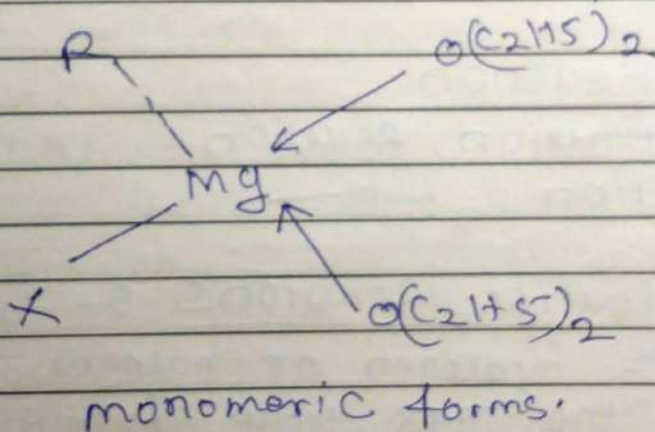 R O(C2H5)2
Mg
X O(C2H5)2
monomeric forms.